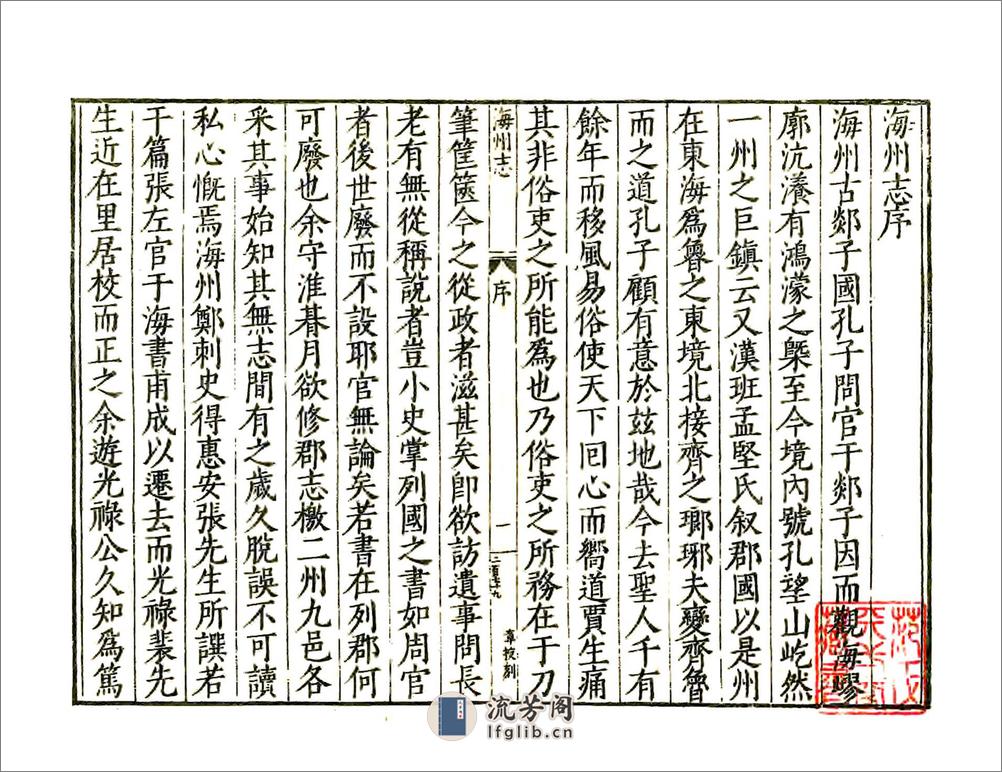 海州志序
海州古郯子國孔子問官于郯子因而觀海嵺
廓沆瀁有鴻濛之槩至今境內號孔望山屹然
一州之巨鎮云又漢班孟堅氏叙郡國以是州
在東海為魯之東境北接齊之瑯琊夫變齊魯
而之道孔子顧有意於茲地哉今去聖人千有
餘年而移風易俗使天下囘心而嚮道賈生痛
其非俗吏之所能為也乃俗吏之所務在于刀
海州志 序 一
章授刻
筆筐篋今之從政者滋甚矣卽欲訪遺事問長
老有無從稱說者豈小史掌列國之書如周官
者後世廢而不設耶官無論矣若書在列郡何
可廢也余守淮朞月欲修郡志檄二州九邑各
采其事始知其無志間有之歲久脫誤不可讀
私心慨焉海州鄭刺史得惠安張先生所譔若
干篇張左官于海書甫成以遷去而光祿裴先
生近在里居校而正之余遊光祿公久知為篤
流芳阁
lfglib.cn